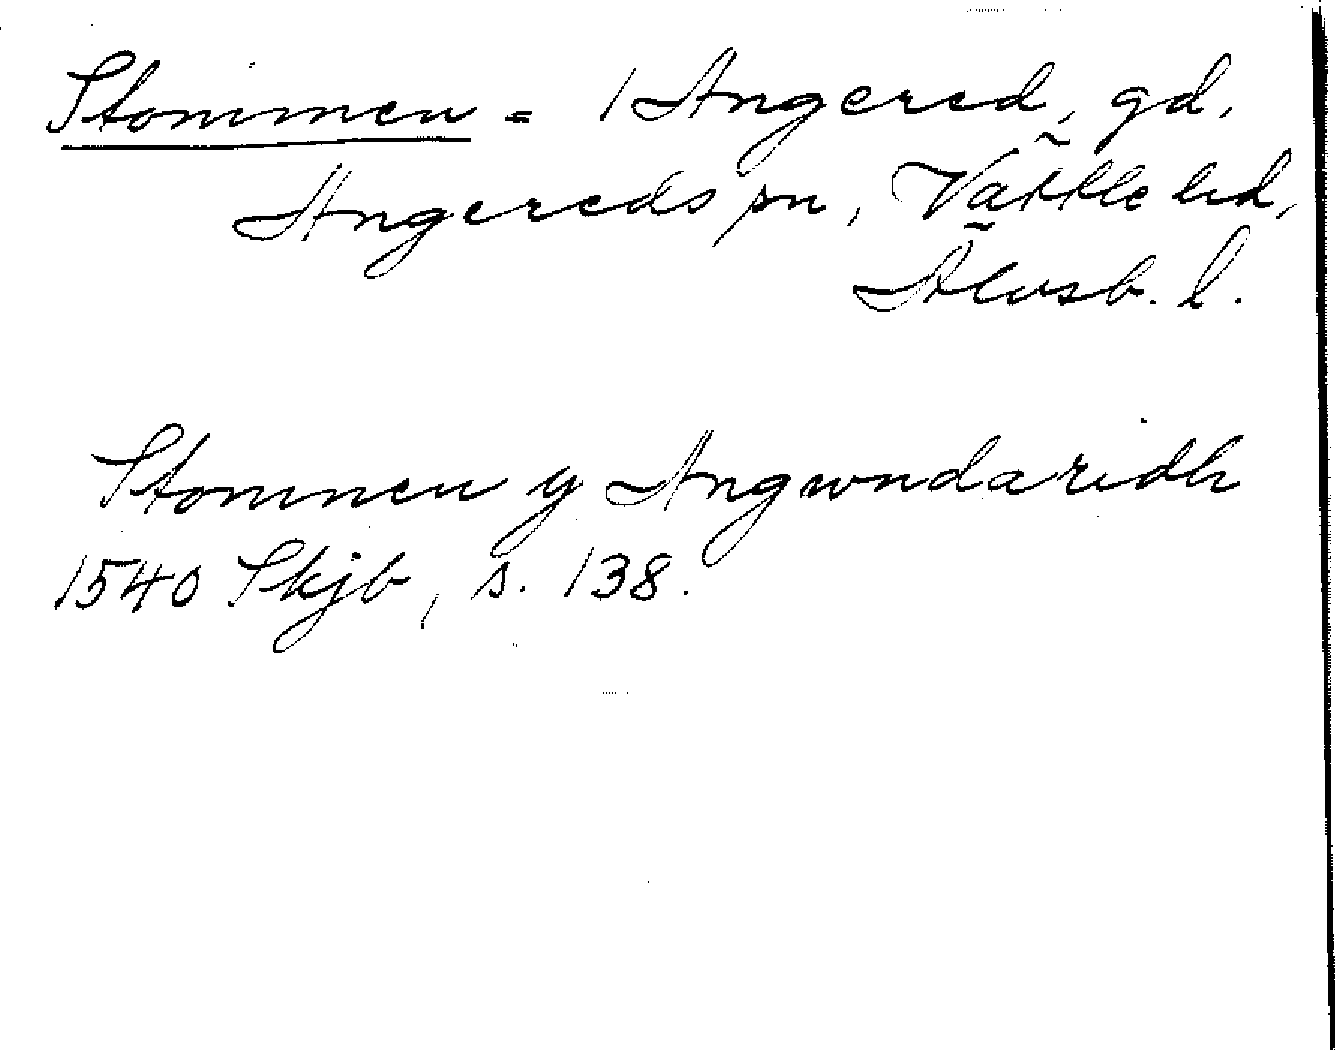 Stommen = 1 Angered, gd,
Angereds sn, Vättle hd,
Älvsb. l.
Stommen y Angwndaridh
1540 Skjb, s. 138.